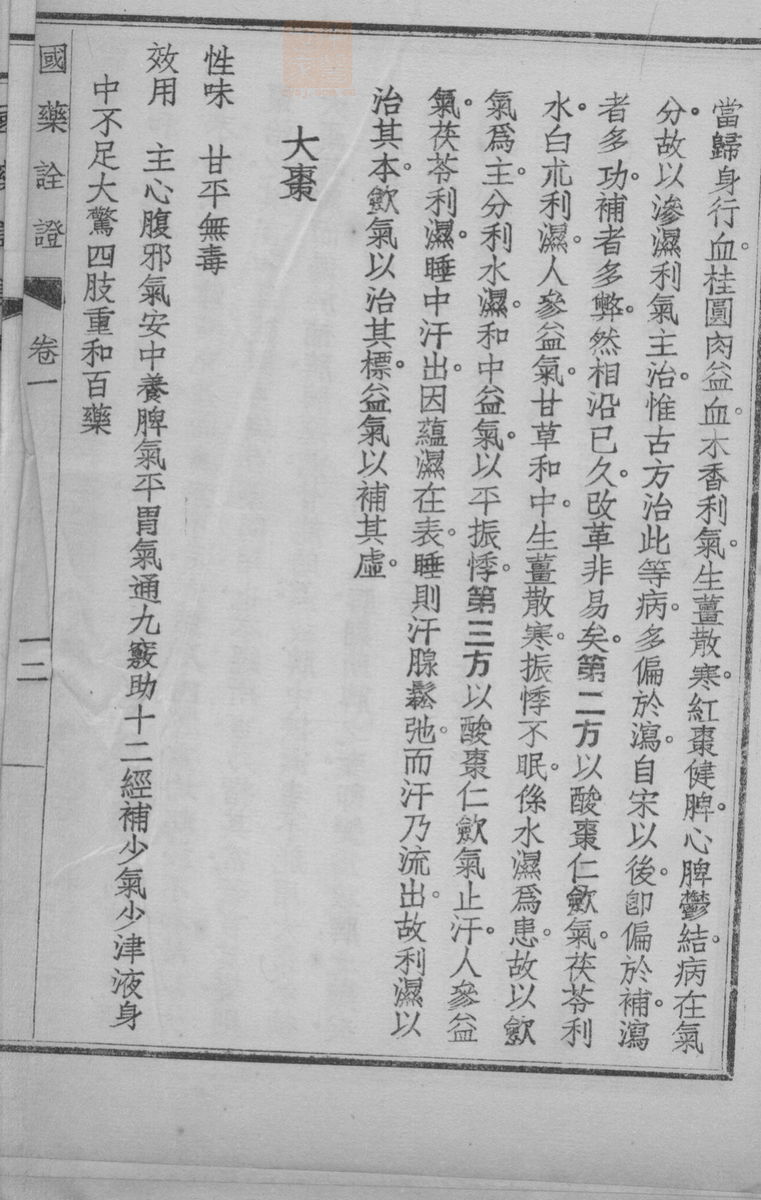 當歸身行血。桂圓肉益血。木香利氣。生薑散寒。紅棗健脾。心脾鬱結。病在氣
分。故以滲濕利氣主治。惟古方治此等病。多偏於瀉。自宋以後。卽偏於補。瀉
者多功。補者多弊。然相沿已久。改革非易矣。第二方以酸棗仁斂氣。茯苓利
水。白朮利濕。人參益氣。甘草和中。生薑散寒。振悸不眠。係水濕爲患。故以斂
氣爲主。分利水濕。和中益氣。以平振悸。第三方以酸棗仁斂氣止汗。人參益
氣。茯苓利濕。睡中汗出。因蘊濕在表。睡則汗腺鬆弛。而汗乃流出。故利濕以
治其本。斂氣以治其標。益氣以補其虛。
大棗
性味　甘平無毒
效用　主心腹邪氣安中養脾氣平胃氣通九竅助十二經補少氣少津液身
中不足大驚四肢重和百藥
國藥詮證
卷一
一二